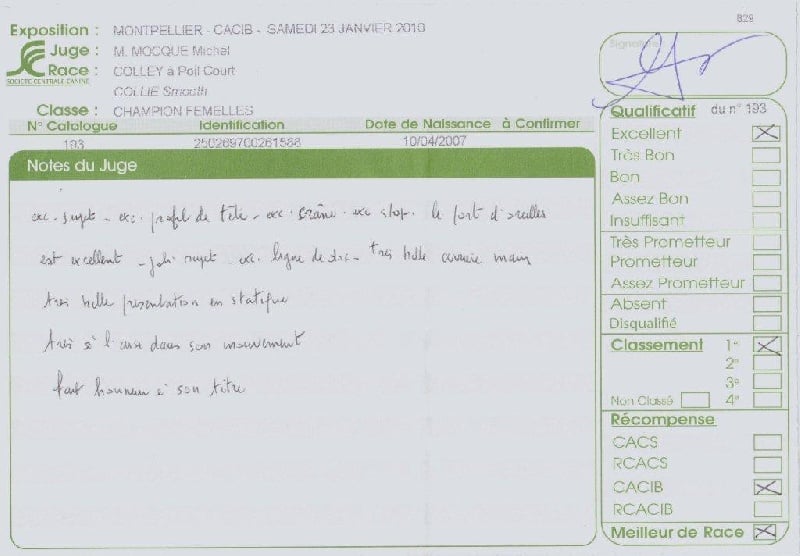 829
Exposition : MONTPELLIER - CACIB - SAMEDI 23 JANVIER 2010
Juge : M. MOCQUE Michel
Race : COLLEY à Poil Court
COLLIE Smooth
SOCIETE CENTRALE CANINE
Classe : CHAMPION FEMELLES
N° Catalogue Identification Date de Naissance à Confirmer
193 250269700261588 10/04/2007
Notes du Juge
exc. sujet - exc. profil de tête - exc. crâne. exc stop. le port d'oreilles
est excellent - joli sujet exc. ligne de dos - très belle arrière main
très belle présentation en statique
très à l'aise dans son mouvement
fait honneur à son titre
Signature
Qualificatif du n° 193
Excellent
Très Bon
Bon
Assez Bon
Insuffisant
Très Prometteur
Prometteur
Assez Prometteur
Absent
Disqualifié
Classement 1°
2°
3°
Non Classé 4°
Récompense
CACS
RCACS
CACIB
RCACIB
Meilleur de Race